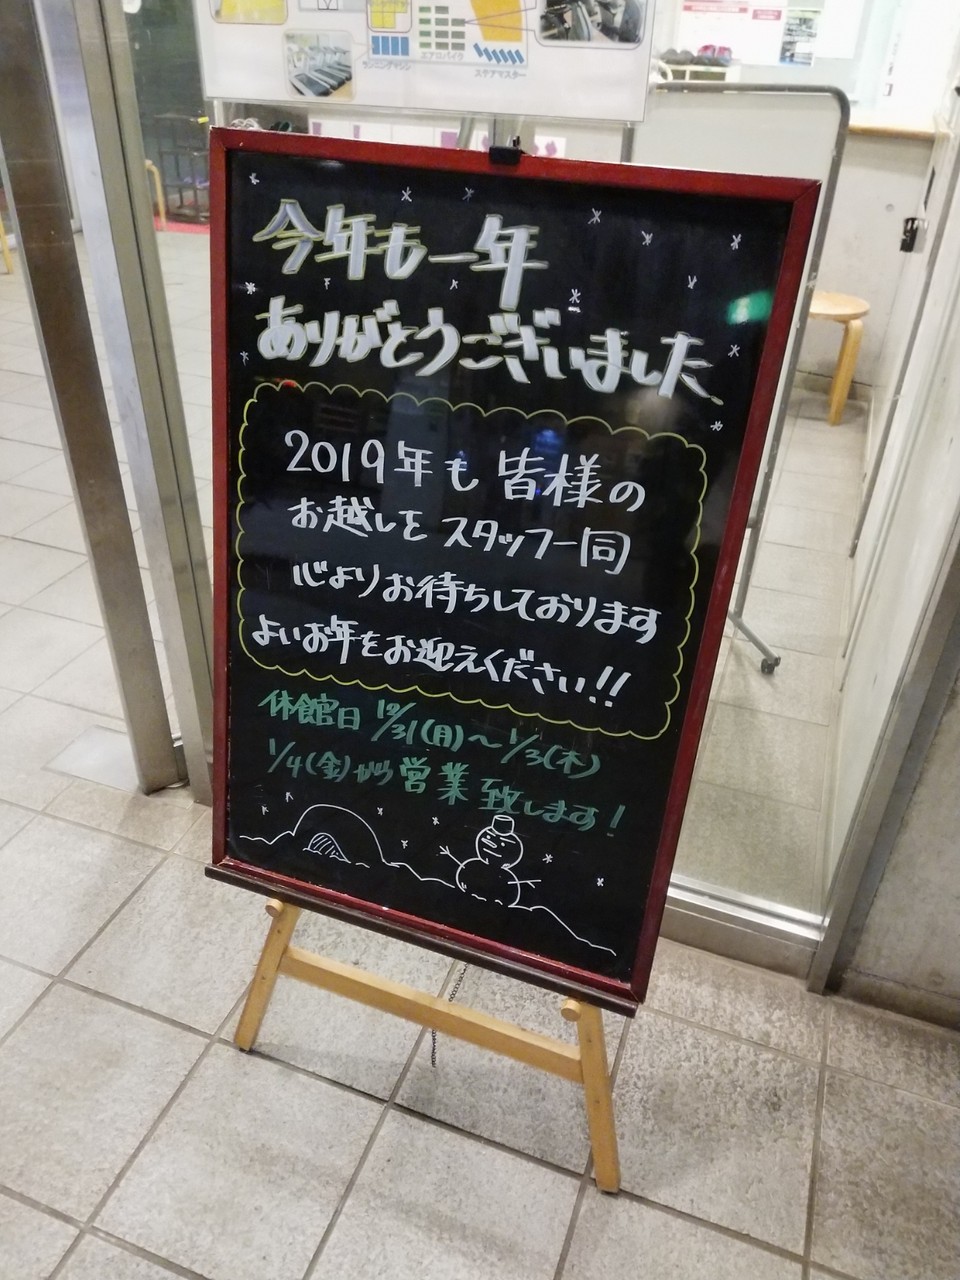 ランニングマシン
エアロバイク
ステアマスター
今年も一年
ありがとうございました。
2019年も 皆様の
お越しを スタッフ一同
心よりお待ちしております
よいお年をお迎えください!!
休館日 12/31(月)～1/3(木)
1/4(金)から営業致します!